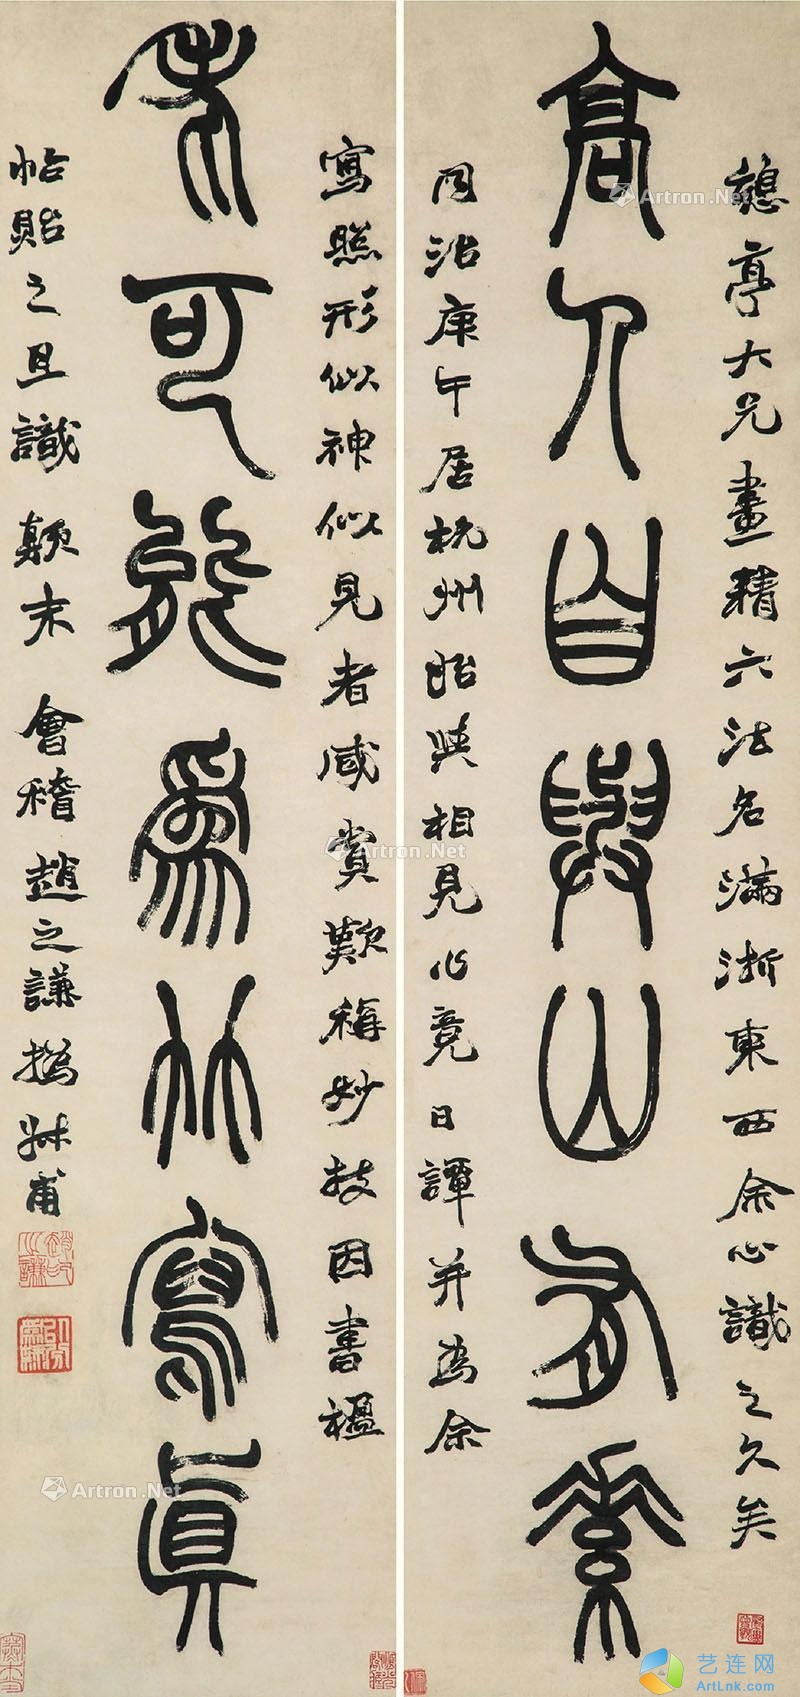 亭大兄畫精六法名滿浙東西余心識之久矣
高人自與山有素
同治庚午居杭州與相見必竟日譚并為余
寫照形似神似見者咸賞歎稱妙技因書楹
老可能為竹寫真
帖貽之且識顛末 會稽趙之謙撝叔甫
Artron.Net
Artron.Net
Artron.Net
艺连网
ArtLnk.com